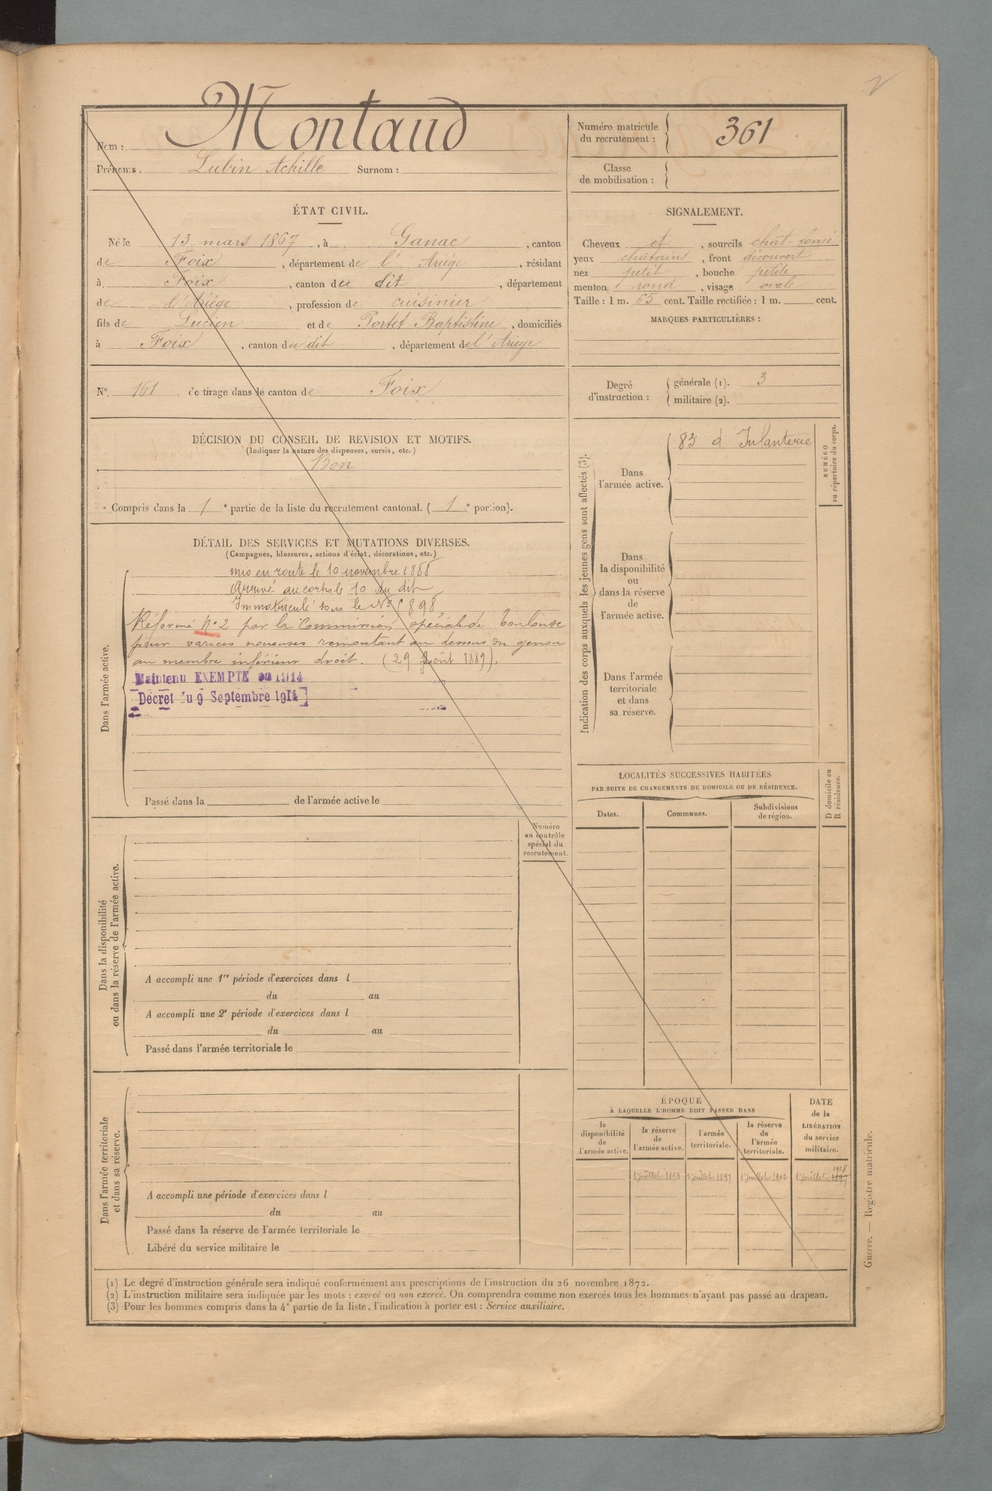 Nom : Montaud
Prénoms. Lubin Achille Surnom :
Numéro matricule du recrutement : 361
Classe de mobilisation :
ÉTAT CIVIL.
Né le 13 mars 1867, à Ganac, canton
de Foix, département de l'Ariége, résidant
à Foix, canton du dit, département
de l'Ariége, profession de cuisinier
fils de Lucien et de Portet Baptistine, domiciliés
à Foix, canton du dit, département de l'Ariége
N° 161 de tirage dans le canton de Foix
SIGNALEMENT.
Cheveux et, sourcils chat foncé
yeux chatains, front découvert
nez petit, bouche petite
menton rond, visage ovale
Taille : 1 m. 55 cent. Taille rectifiée : 1 m. cent.
MARQUES PARTICULIÈRES :
Degré d'instruction : générale (1). 3
militaire (2).
DÉCISION DU CONSEIL DE REVISION ET MOTIFS.
(Indiquer la nature des dispenses, sursis, etc.)
Bon
Compris dans la 1e partie de la liste du recrutement cantonal. (1e portion).
DÉTAIL DES SERVICES ET MUTATIONS DIVERSES.
(Campagnes, blessures, actions d'éclat, décorations, etc.)
Dans l'armée active.
mis en route le 10 novembre 1888
Arrivé au corps le 10 du dit
Immatriculé sous le N°
Réformé N° 2 par la Commission spéciale de Toulouse
pour varices noueuses remontant au dessous du genou
au membre inférieur droit. (29 Août 1889).
Maintenu EXEMPTÉ en 1914
Décret du 9 Septembre 1914
Passé dans la de l'armée active le
Indication des corps auxquels les jeunes gens sont affectés (3).
Dans l'armée active.
83 d'Infanterie
NUMÉRO au répertoire du corps.
Dans la disponibilité ou dans la réserve de l'armée active.
Dans l'armée territoriale et dans sa réserve.
LOCALITÉS SUCCESSIVES HABITÉES
PAR SUITE DE CHANGEMENTS DE DOMICILE OU DE RÉSIDENCE.
Dates. Communes. Subdivisions de région.
D domicile ou R résidence.
Numéro au contrôle spécial du recrutement.
Dans la disponibilité ou dans la réserve de l'armée active.
A accompli une 1re période d'exercices dans l
du au
A accompli une 2e période d'exercices dans l
du au
Passé dans l'armée territoriale le
Dans l'armée territoriale et dans sa réserve.
A accompli une période d'exercices dans l
du au
Passé dans la réserve de l'armée territoriale le
Libéré du service militaire le
ÉPOQUE
À LAQUELLE L'HOMME DOIT PASSER DANS
la disponibilité de l'armée active.
la réserve de l'armée active.
l'armée territoriale.
la réserve de l'armée territoriale.
DATE de la LIBÉRATION du service militaire.
1er juillet
(1) Le degré d'instruction générale sera indiqué conformément aux prescriptions de l'instruction du 26 novembre 1872.
(2) L'instruction militaire sera indiquée par les mots : exercé ou non exercé. On comprendra comme non exercés tous les hommes n'ayant pas passé au drapeau.
(3) Pour les hommes compris dans la 4e partie de la liste, l'indication à porter est : Service auxiliaire.
Guerre. — Registre matricule.